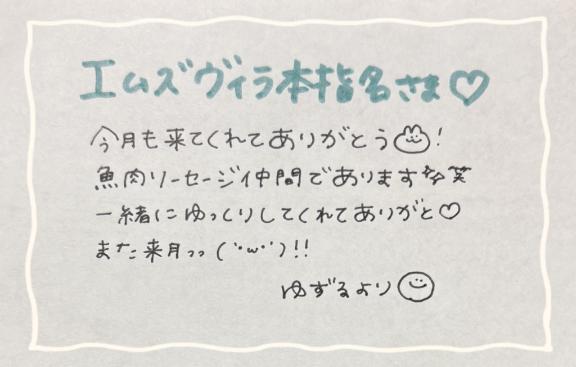 エムズヴィラ本指名さま♡
今月も来てくれてありがとう!
魚肉ソーセージ仲間であります笑
一緒にゆっくりしてくれてありがと♡
また来月っっ(˙꒳˙)!!
ゆずるより